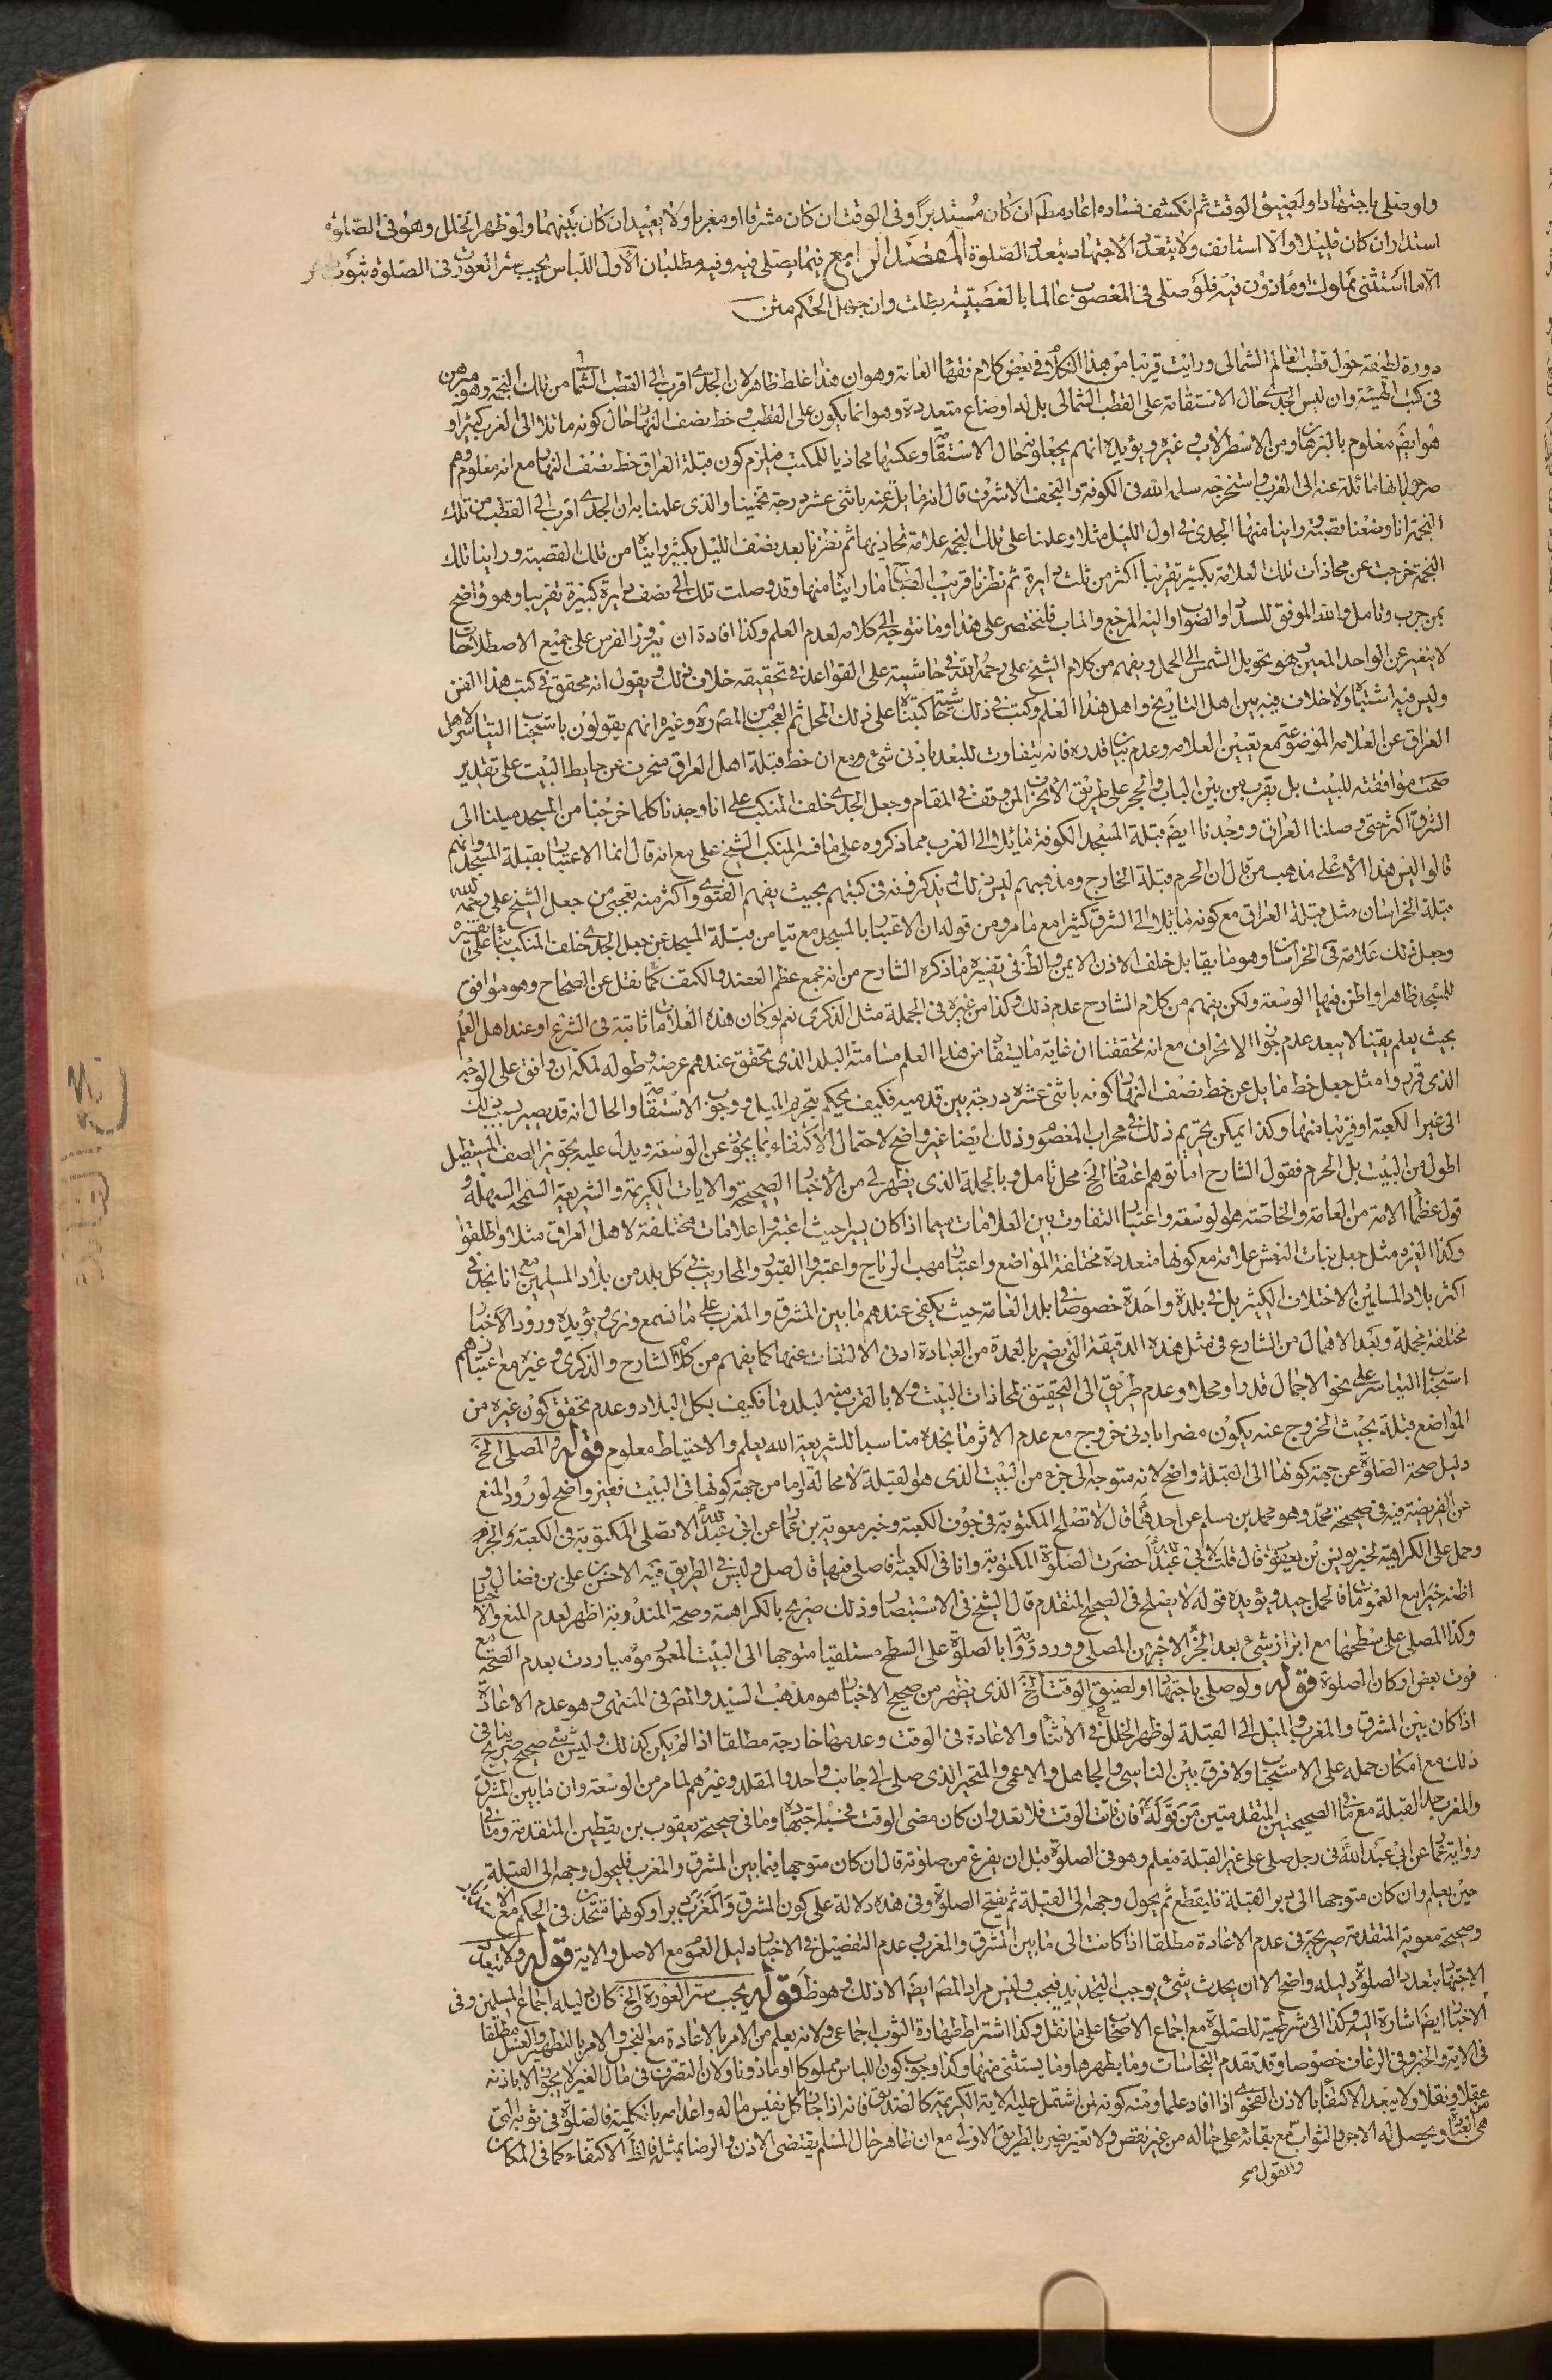 ولو صلى باجتهاد او لضيق الوقت ثم انكشف فساده اعاد مطلقا ان كان مستدبرا وفى الوقت ان كان مشرقا او مغربا ولا يعيد ان كان بينهما ولو ظهر الخلل وهو فى الصلوة
استدار ان كان قليلا والا استانف ولا يتعدد الاجتهاد بتعدد الصلوة المقصد الرابع فيما يصلى فيه وفيه مطلبان الاول اللباس يجب ستر العورة فى الصلوة بثوب
الا ما استثنى مملوك او ماذون فيه فلو صلى فى المغصوب عالما بالغصبية بطلت وان جهل الحكم متن
دورة لطيفة حول قطب العالم الشمالى ورايت قريبا من هذا الكلام فى بعض كلام فقهاء العامة وهو ان هذا غلط ظاهر لان الجدى اقرب الى القطب الشمالى من تلك النجمة وهو مبرهن
فى كتب الهيئة وان ليس الجدى حال الاستقامة على القطب الشمالى بل له اوضاع متعددة وهو انما يكون على القطب وخط نصف النهار حال كونه مائلا الى الغرب كثيرا و
هو ايضا معلوم بالبرهان ومن الاسطرلاب وغيره ويؤيده انهم يجعلونه حال الاستقامة وعكسها محاذيا للمنكب فيلزم كون قبلة العراق خط نصف النهار مع انه معلوم وهم
صرحوا بانها مائلة عنه الى الغرب واستخرجه سلمه الله فى الكوفة والنجف الاشرف قال انه مايل عنه باثنى عشر درجة تخمينا والذى علمنا به ان الجدى اقرب الى القطب من تلك
النجمة انا وضعنا قصبة وراينا منها الجدى فى اول الليل مثلا وعلمنا على تلك النجمة علامة تحاذيها ثم نظرنا بعد نصف الليل بكثير وايناه من تلك القصبة وراينا تلك
النجمة خرجت عن محاذات تلك العلامة بكثير تقريبا اكثر من ثلث دايرة ثم نظرنا قريب الصباح فما رايناه منها وقد وصلت تلك الى نصف دايرة كبيرة تقريبا وهو واضح
لمن جرب وتامل والله الموفق للسداد والصواب واليه المرجع والماب فلنختصر على هذا وما نتوجه الى كلامه لعدم العلم وكذا افادة ان نيروز الفرس على جميع الاصطلاحات
لا يتغير عن الواحد المعين وهو تحويل الشمس الى الحمل ويفهم من كلام الشيخ على رحمه الله فى حاشيته على القواعد فى تحقيقه خلاف ذلك ويقول انه محقق فى كتب هذا الفن
وليس فيه اشتباه ولا خلاف فيه بين اهل التاريخ واهل هذا العلم وكتبت فى ذلك شيئا حتى كتبناه على ذلك المحل ثم العجب من المصره وغيره انهم يقولون باستحباب التياسر لاهل
العراق عن العلامة الموضوعة مع تعيين العلامة وعدم بيان قدره فانه يتفاوت للبعد بادنى شئ ومع ان خط قبلة اهل العراق منحرف عن حايط البيت على تقدير
صحت موافقته للبيت بل يقرب من بين الباب والحجر على طريق الانحراف لمن وقف فى المقام وجعل الجدى خلف المنكب على انا وجدنا كلما خرجنا من المسجد ميلنا الى
الشرق اكثر حتى وصلنا العراق ووجدنا ايضا قبلة المسجد الكوفة مائلا الى الغرب مما ذكروه على ما فسر المنكب الشيخ على مع انه قال انما الاعتبار بقبلة المسجد وانهم
قالوا ليس هذا الا على مذهب من قال ان الحرم قبلة الخارج ومذهبهم ليس ذلك ويذكرونه فى كتبهم بحيث يفهم الفتوى واكثر منه تعجبى من جعل الشيخ على رحمه الله
قبلة الخراسان مثل قبلة العراق مع كونه مايلا الى الشرق كثيرا مع ما مر ومن قوله ان الاعتبار بالمسجد مع تيامن قبلة المسجد عن جعل الجدى خلف المنكب بناء على تفسيره
وجعل ذلك علامة فى الخراسان وهو ما يقابل خلف الاذن الايمن والظ فى تفسيره ما ذكره الشارح من انه مجمع عظم العضد والكتف كما نقل عن الصحاح وهو موافق
للمسجد ظاهرا واظن فيها الوسعة ولكن يفهم من كلام الشارح عدم ذلك وكذا من غيره فى الجملة مثل الذكرى نعم لو كان هذه العلامات ثابتة فى الشرع او عند اهل العلم
بحيث يعلم يقينا لا يبعد عدم جواز الانحراف مع انه تحققنا ان غاية ما يستفاد من هذا العلم مسامتة البلد الذى تحقق عندهم عرضه وطوله لمكة ان وافق على الوجه
الذى قرره وامثل جعل خط مايل عن خط نصف النهار كونه باثنى عشره درجة بين قدميه فكيف يحكم بتحريم الميل ووجوب الاستقامة والحال انه قد يصير بسبب ذلك
الى غير الكعبة او قريبا منها وكذا يمكن تحريم ذلك فى محراب المعصوم وذلك ايضا غير واضح لاحتمال الاكتفاء بما يجوز عن الوسعة ويدل عليه تجويز الصف المستطيل
اطول من البيت بل الحرم فقول الشارح اما توهم اغتفار الخ محل تامل وبالجملة الذى يظهر لى من الاخبار الصحيحة والايات الكريمة والشريعة السمحة السهلة و
قول عظماء الامة من العامة والخاصة هو الوسعة واعتبار التفاوت بين العلامات سيما اذا كان يسيرا حيث اعتبروا علامات مختلفة لاهل العراق مثلا واطلقوا
وكذا لغيره مثل جعل بنات النعش علامة مع كونها متعددة مختلفة المواضع واعتبار مهب الرياح واعتبروا القبور والمحاريب فى كل بلد من بلاد المسلمين مع انا نجد فى
اكثر بلاد المسلمين الاختلاف الكثير بل فى بلدة واحدة خصوصا فى بلد العامة حيث يكفى عندهم ما بين المشرق والمغرب على ما نسمع ونرى ويؤيده ورود الاخبار
مختلفة مجملة وبعد الاهمال من الشارع فى مثل هذه الدقيقة التى يضر بالعمدة من العبادة ادنى الالتفات عنها كما يفهم من كلام الشارح والذكرى وغيره مع اعتبارهم
استحباب التياسر على نحو الاجمال قدرا ومحلا وعدم طريق الى التحقيق لمحاذات البيت ولا بالقرب منه لبلد ما فكيف بكل البلاد وعدم تحقق كون غيره من
المواضع قبلة بحيث الخروج عنه يكون مضرا بادنى خروج مع عدم الاثر ما نجده مناسبا للشريعة الله يعلم والاحتياط معلوم قوله والمصلى الخ
دليل صحة الصلوة عن جهة كونها الى القبلة واضح لانه متوجه الى جزء من البيت الذى هو القبلة لا محالة واما من جهة كونها فى البيت فغير واضح لورود المنع
عن الفريضة فيه فى صحيحة محمد وهو محمد بن مسلم عن احدهما قال لا تصلح المكتوبة فى جوف الكعبة وخبر معوية بن عمار عن ابى عبد الله لا تصلى المكتوبة فى الكعبة والحرم
وحمل على الكراهية لخبر يونس بن يعقوب قال قلت لابى عبد الله حضرت الصلوة المكتوبة وانا فى الكعبة فاصلى فيها قال صل وليس فى الطريق فيه الا حسن بن على بن فضال و
اظنه خيرا مع العمومات فالحمل جيد ويؤيده قوله لا يصلح فى الصحيح المتقدم قال الشيخ فى الاستبصار وذلك صريح بالكراهة وصحة المندوبة اظهر لعدم المنع والاخبار
وكذا المصلى على سطحها مع ابراز شئ بعد الجزء الاخير من المصلى وورود رواية بالصلوة على السطح مستلقيا متوجها الى البيت المعمور موميا ردت بعدم الصحة مع
فوت بعض اركان الصلوة قوله ولو صلى باجتهاد او لضيق الوقت الخ الذى يظهر من صحيح الاخبار هو مذهب السيد والمص فى المنتهى وهو عدم الاعادة
اذا كان بين المشرق والمغرب والميل الى القبلة لو ظهر الخلل فى الاثناء والاعادة فى الوقت وعدمها خارجة مطلقا اذا لم يكن كذلك وليس شئ صحيح صريح ينافى
ذلك مع امكان حمله على الاستحباب ولا فرق بين الناسى والجاهل والاعمى والمتحير الذى صلى الى جانب واحد والمقلد وغيرهم لما مر من الوسعة وان ما بين المشرق
والمغرب حد القبلة مع ما فى الصحيحتين المتقدمتين من قوله فان فات الوقت فلا تعد وان كان مضى الوقت فحسبه اجتهاده وما فى صحيحة يعقوب بن يقطين المتقدمة وما فى
رواية عمار عن ابى عبد الله فى رجل صلى على غير القبلة فيعلم وهو فى الصلوة قبل ان يفرغ من صلوته قال ان كان متوجها فيما بين المشرق والمغرب فليحول وجهه الى القبلة
حين يعلم وان كان متوجها الى دبر القبلة فليقطع ثم يحول وجهه الى القبلة ثم يفتتح الصلوة وفى هذه دلالة على كون المشرق والمغرب دبرا وكونهما متحدان فى الحكم مع
وصحيحة معوية المتقدمة صريحة فى عدم الاعادة مطلقا اذا كانت الى ما بين المشرق والمغرب وعدم التفضيل فى الاخبار دليل العموم مع الاصل والاية قوله ولا يتعدد
الاجتهاد بتعدد الصلوة دليله واضح الا ان يحدث شئ يوجب التجديد فيجب وليس مراد المص ايضا الا ذلك وهو ظ قوله يجب ستر العورة الخ كان دليله اجماع المسلمين وفى
الاخبار ايضا اشارة اليه وكذا الى شرطية للصلوة مع اجماع الاصحاب على ما نقل وكذا اشتراط طهارة الثوب اجماعى ولانه يعلم من الامر بالاعادة مع النجس والامر بالتطهير والغسل مطلقا
فى الاية والخبر وفى الرعاف خصوصا وقد تقدم النجاسات وما يطهرها وما يستثنى منها وكذا وجوب كون اللباس مملوكا او ماذونا ولان التصرف فى مال الغير لا يجوز الا باذنه
عقلا ونقلا ولا يبعد الاكتفاء بالاذن الفحوى اذا افاد علما ومنه كونه لمن اشتمل عليه الاية الكريمة كالصديق فانه اذا جاز اكل نفيس ماله واعدامه بالكلية فالصلوة فى ثوبه التى
هى العبادة ويحصل له الاجر والثواب مع بقائه على حاله من غير نقص ولا تغير يضر بالطريق الاولى مع ان ظاهر حال المسلم يقتضى الاذن والرضا بمثله فالظ الاكتفاء كما فى المكان
والقول صح